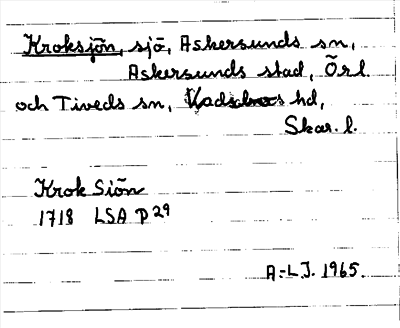 Kroksjön, sjö, Askersunds sn,
Askersunds stad, Örl.
och Tiveds sn, Vadsbro hd,
Skar. l.
Krok Siön
1718 LSA P 29
A-L.J. 1965.